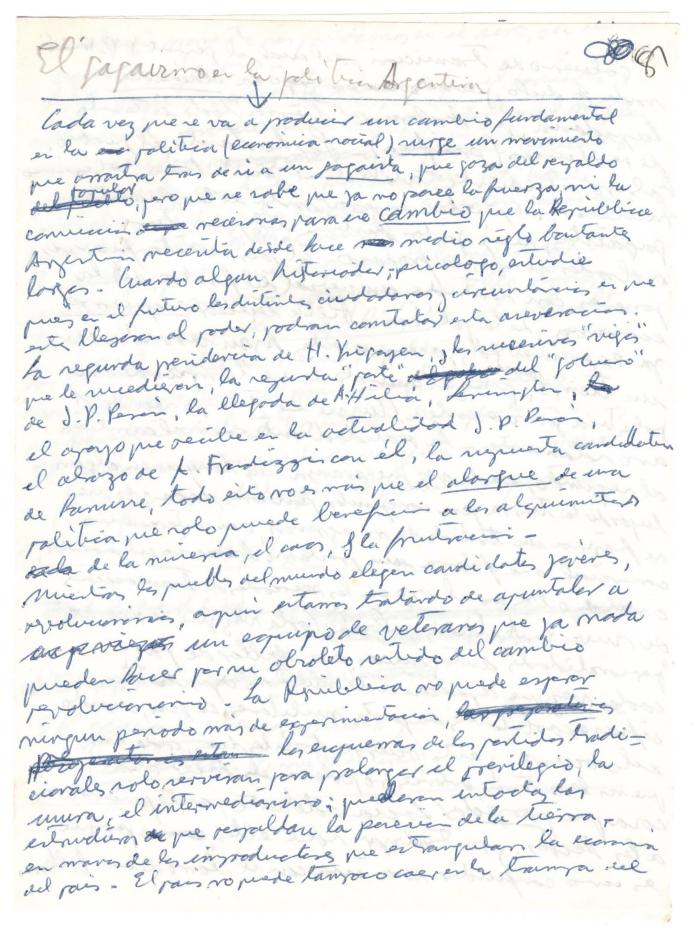 8
El gagaismo en la política Argentina
Cada vez que se va a producir un cambio fundamental
en la política (económica-social) surge un movimiento
que arrastra tras de si a un gagaista, que goza del respaldo
popular, pero que se sabe que ya no posee la fuerza, ni la
convicción necesarias para ese cambio que la República
Argentina necesita desde hace medio siglo bastante
largos. Cuando algun historiador, psicologo, estudie
pues en el futuro los distintos ciudadanos y circunstancias en que
estos llegaron al poder, podran constatar esta aseveracion.
La segunda presidencia de H. Yrigoyen, y los sucesivos "viejos"
que le sucedieron, la segunda "parte" del "gobierno"
de J. D. Perón, la llegada de A. Illia, Levingston,
el apoyo que recibe en la actualidad J. D. Perón,
el abrazo de A. Frondizzi con él, la supuesta candidatura
de todo esto no es más que el alargue de una
politica que solo puede beneficiar a los alquimistas
de la miseria, el caos, y la frustracion -
Mientras los pueblos del mundo eligen candidatos jóvenes,
revolucionarios, aqui estamos tratando de apuntalar a
un equipo de veteranos que ya nada
pueden hacer por su obsoleto sentido del cambio
revolucionario - La República no puede esperar
ningun periodo más de experimentacion,
los esquemas de los partidos tradi-
cionales solo serviran para prolongar el privilegio, la
usura, el intermediarismo; quedaran intactas las
estructuras que respaldan la posesion de la tierra,
en manos de los improductores que estrangulan la economia
del pais - El pais no puede tampoco caer en la trampa del